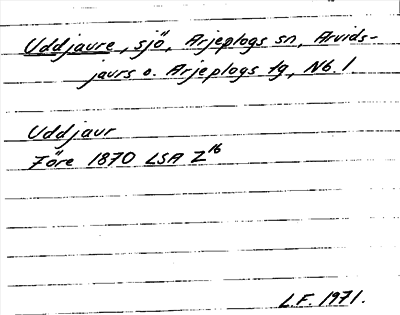 Uddjaure, sjö, Arjeplogs sn, Arvids-
jaurs o. Arjeplogs tg, Nb. l
Uddjaur
Före 1870 LSA Z16
L.F. 1971.